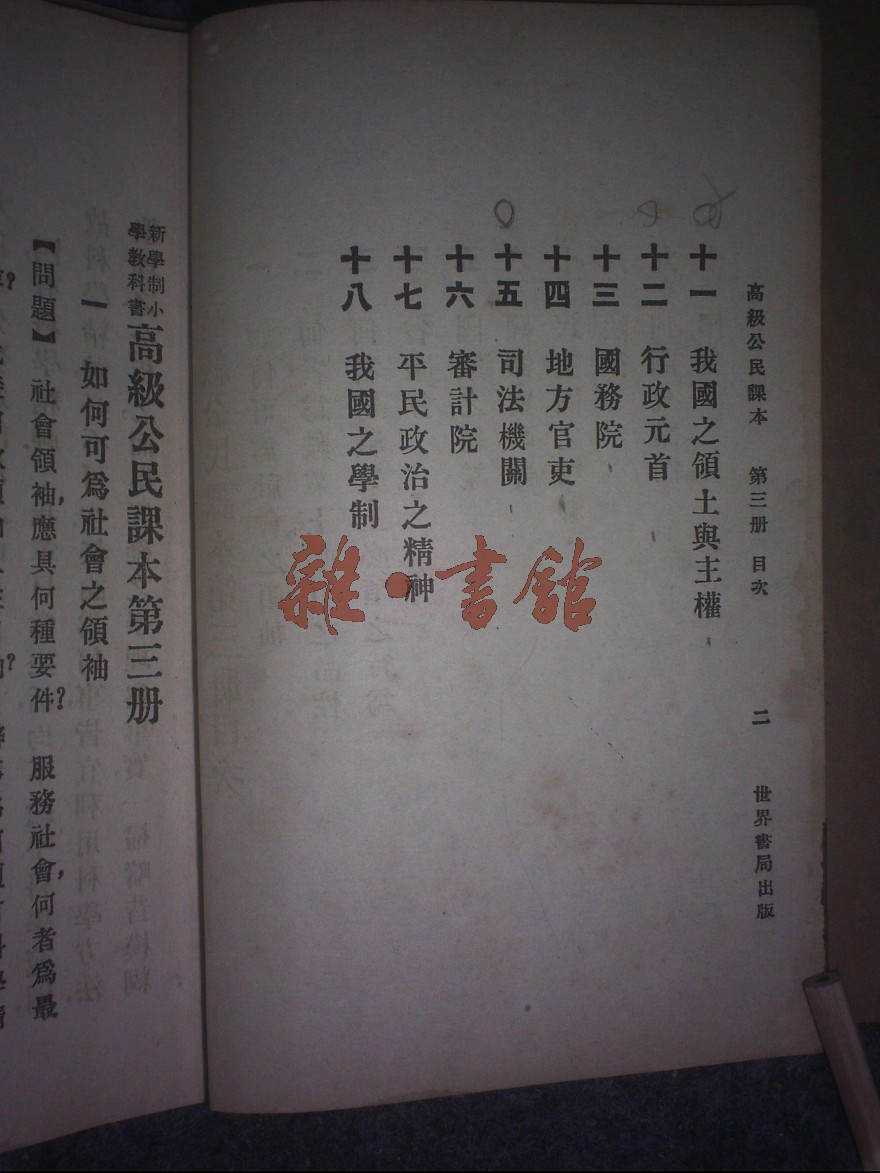 高級公民課本 第三册 目次 二 世界書局出版
十一 我國之領土與主權
十二 行政元首
十三 國務院
十四 地方官吏
十五 司法機關
十六 審計院
十七 平民政治之精神
十八 我國之學制
雜·書館
新學制小學教科書 高級公民課本第三册
一 如何可爲社會之領袖
【問題】社會領袖,應具何種要件? 服務社會,何者爲最